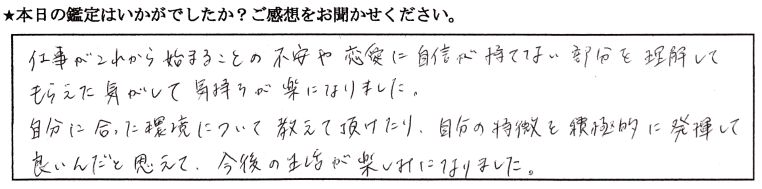 ★本日の鑑定はいかがでしたか？ご感想をお聞かせください。
仕事がこれから始まることの不安や恋愛に自信が持ててない部分を理解して
もらえた気がして気持ちが楽になりました。
自分に合った環境について教えて頂けたり、自分の特徴を積極的に発揮して
良いんだと思えて、今後の生活が楽しみになりました。